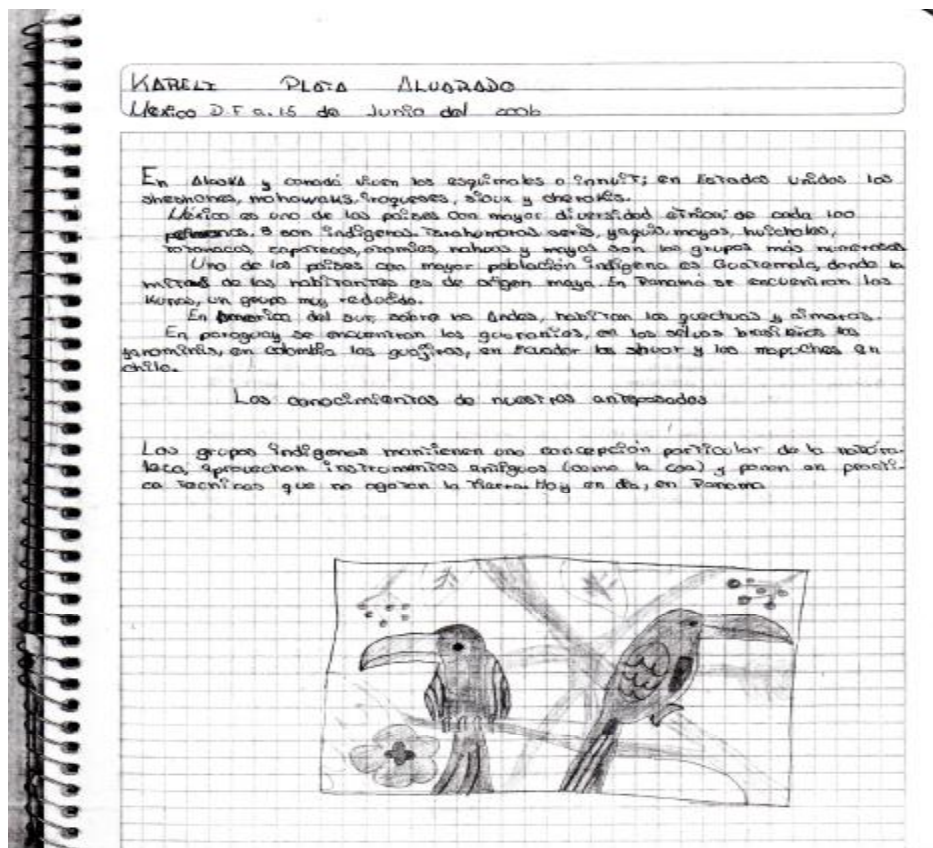 KARELI PLATA ALVARADO
México D.F a. 15 de Junio del 2006
En Alaska y canadá viven los esquimales o innuit; en Estados Unidos los
shoshones, mohawaks, iroqueses, sioux y cherokis.
México es uno de los países con mayor diversidad etnica; de cada 100
8 son indígenas. Tarahumaras seris, yaquis, mayos, huicholes,
totonacas zapotecas, otomies, nahuas y mayas son los grupos más numerosos
Uno de los países con mayor población indígena es Guatemala, donde la
mitad de los habitantes es de origen maya. En Panamá se encuentran los
Kunas, un grupo muy reducido.
En America del sur, sobre los Andes, habitan los quechuas y aimaras.
En paraguay se encuentran los guaranies, en las selvas brasileñas los
yanomamis, en colombia los guajiros, en Ecuador los shuar y los mapuches en
chile.
Los conocimientos de nuestros antepasados
Los grupos indígenas mantienen una concepción particular de la natura-
leza, aprovechan instrumentos antiguos (como la coa) y ponen en practi-
ca tecnicas que no agotan la tierra. Hoy en día, en Panama